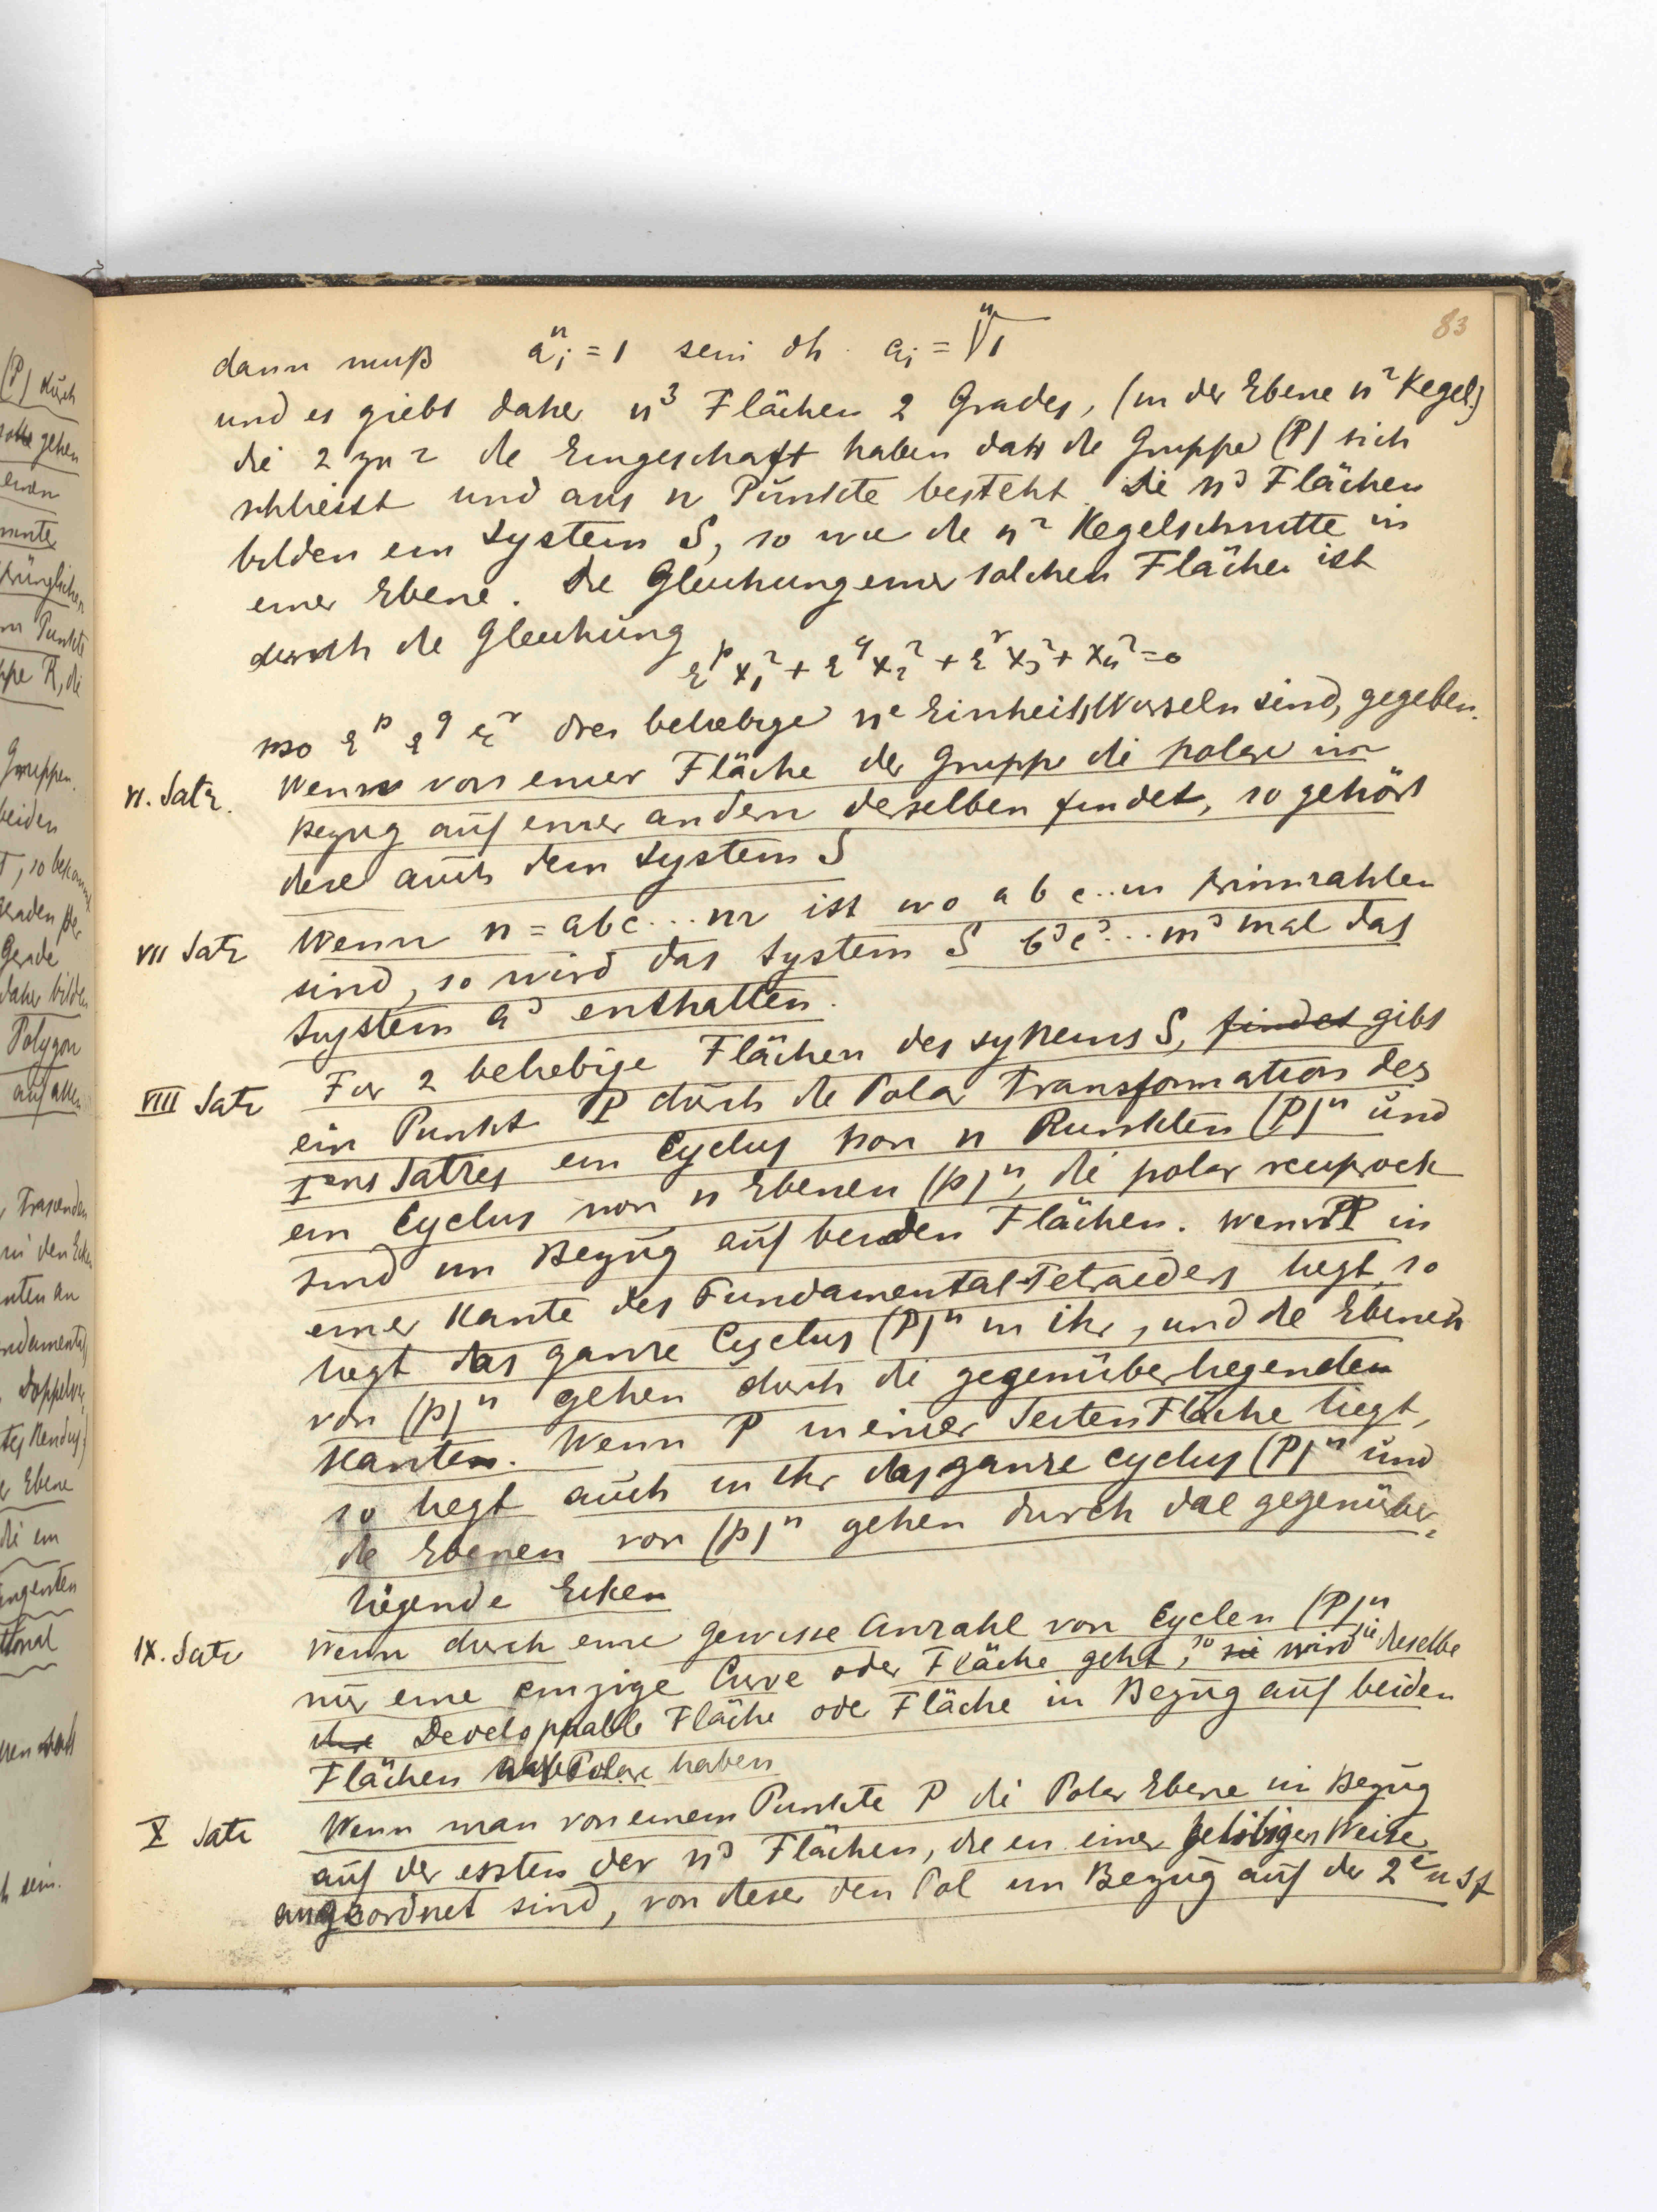 83
dann muß a_i^n = 1 sein dh. a_i = \sqrt[n]{1}
und es giebt daher n^3 Flächen 2 Grades, (in der Ebene n^2 Kegel.)
die 2 zu 2 die Eingeschaft haben dass die Gruppe (P) sich
schliesst und aus n Punkte besteht. Die n^3 Flächen
bilden ein System S, so wie die n^2 Kegelschnitte in
einer Ebene. Die Gleichung einer solchen Fläche ist
durch die Gleichung
ε^p x_1^2 + ε^q x_2^2 + ε^r x_3^2 + x_4^2 = 0
wo ε^p ε^q ε^r drei beliebige n^e Einheitswurzeln sind, gegeben.
VI. Satz. Wenn von einer Fläche der Gruppe die polare in
Bezug auf einer andern derselben findet, so gehört
diese auch dem System S
VII Satz Wenn n = abc...m ist wo a b c..m primzahlen
sind, so wird das System S b^3c^3...m^3 mal das
System a^3 enthalten.
VIII Satz Für 2 beliebige Flächen des systems S, findet gibt
ein Punkt P durch die Polar Transformation des
I^ens Satzes ein Cyclus von n Punkten (P)^n und
ein Cyclus von n Ebenen (p)^n, die polar reciprock
sind im Bezug auf beiden Flächen. Wenn P in
einer Kante des Fundamental-Tetraeders liegt, so
liegt das ganze Cyclus (P)^n in ihr, und die Ebenen
von (p)^n gehen durch die gegenüberliegenden
Kanten. Wenn P in einer SeitenFläche liegt,
so liegt auch in ihr das ganze cyclus (P)^n und
die Ebenen von (p)^n gehen durch die gegenüber-
liegende Ecken
IX. Satz Wenn durch eine gewisse Anzahl von Cyclen (P)^n
nur eine einzige Curve oder Fläche geht, so sie wird sie dieselbe
ihre Developpable Fläche oder Fläche in Bezug auf beiden
Flächen Polare haben
X Satz Wenn man von einem Punkte P die Polar Ebene in Bezug
auf der ersten der n^3 Flächen, die in einer beliebigen Weise
angeordnet sind, von dieser den Pol im Bezug auf der 2^e usf